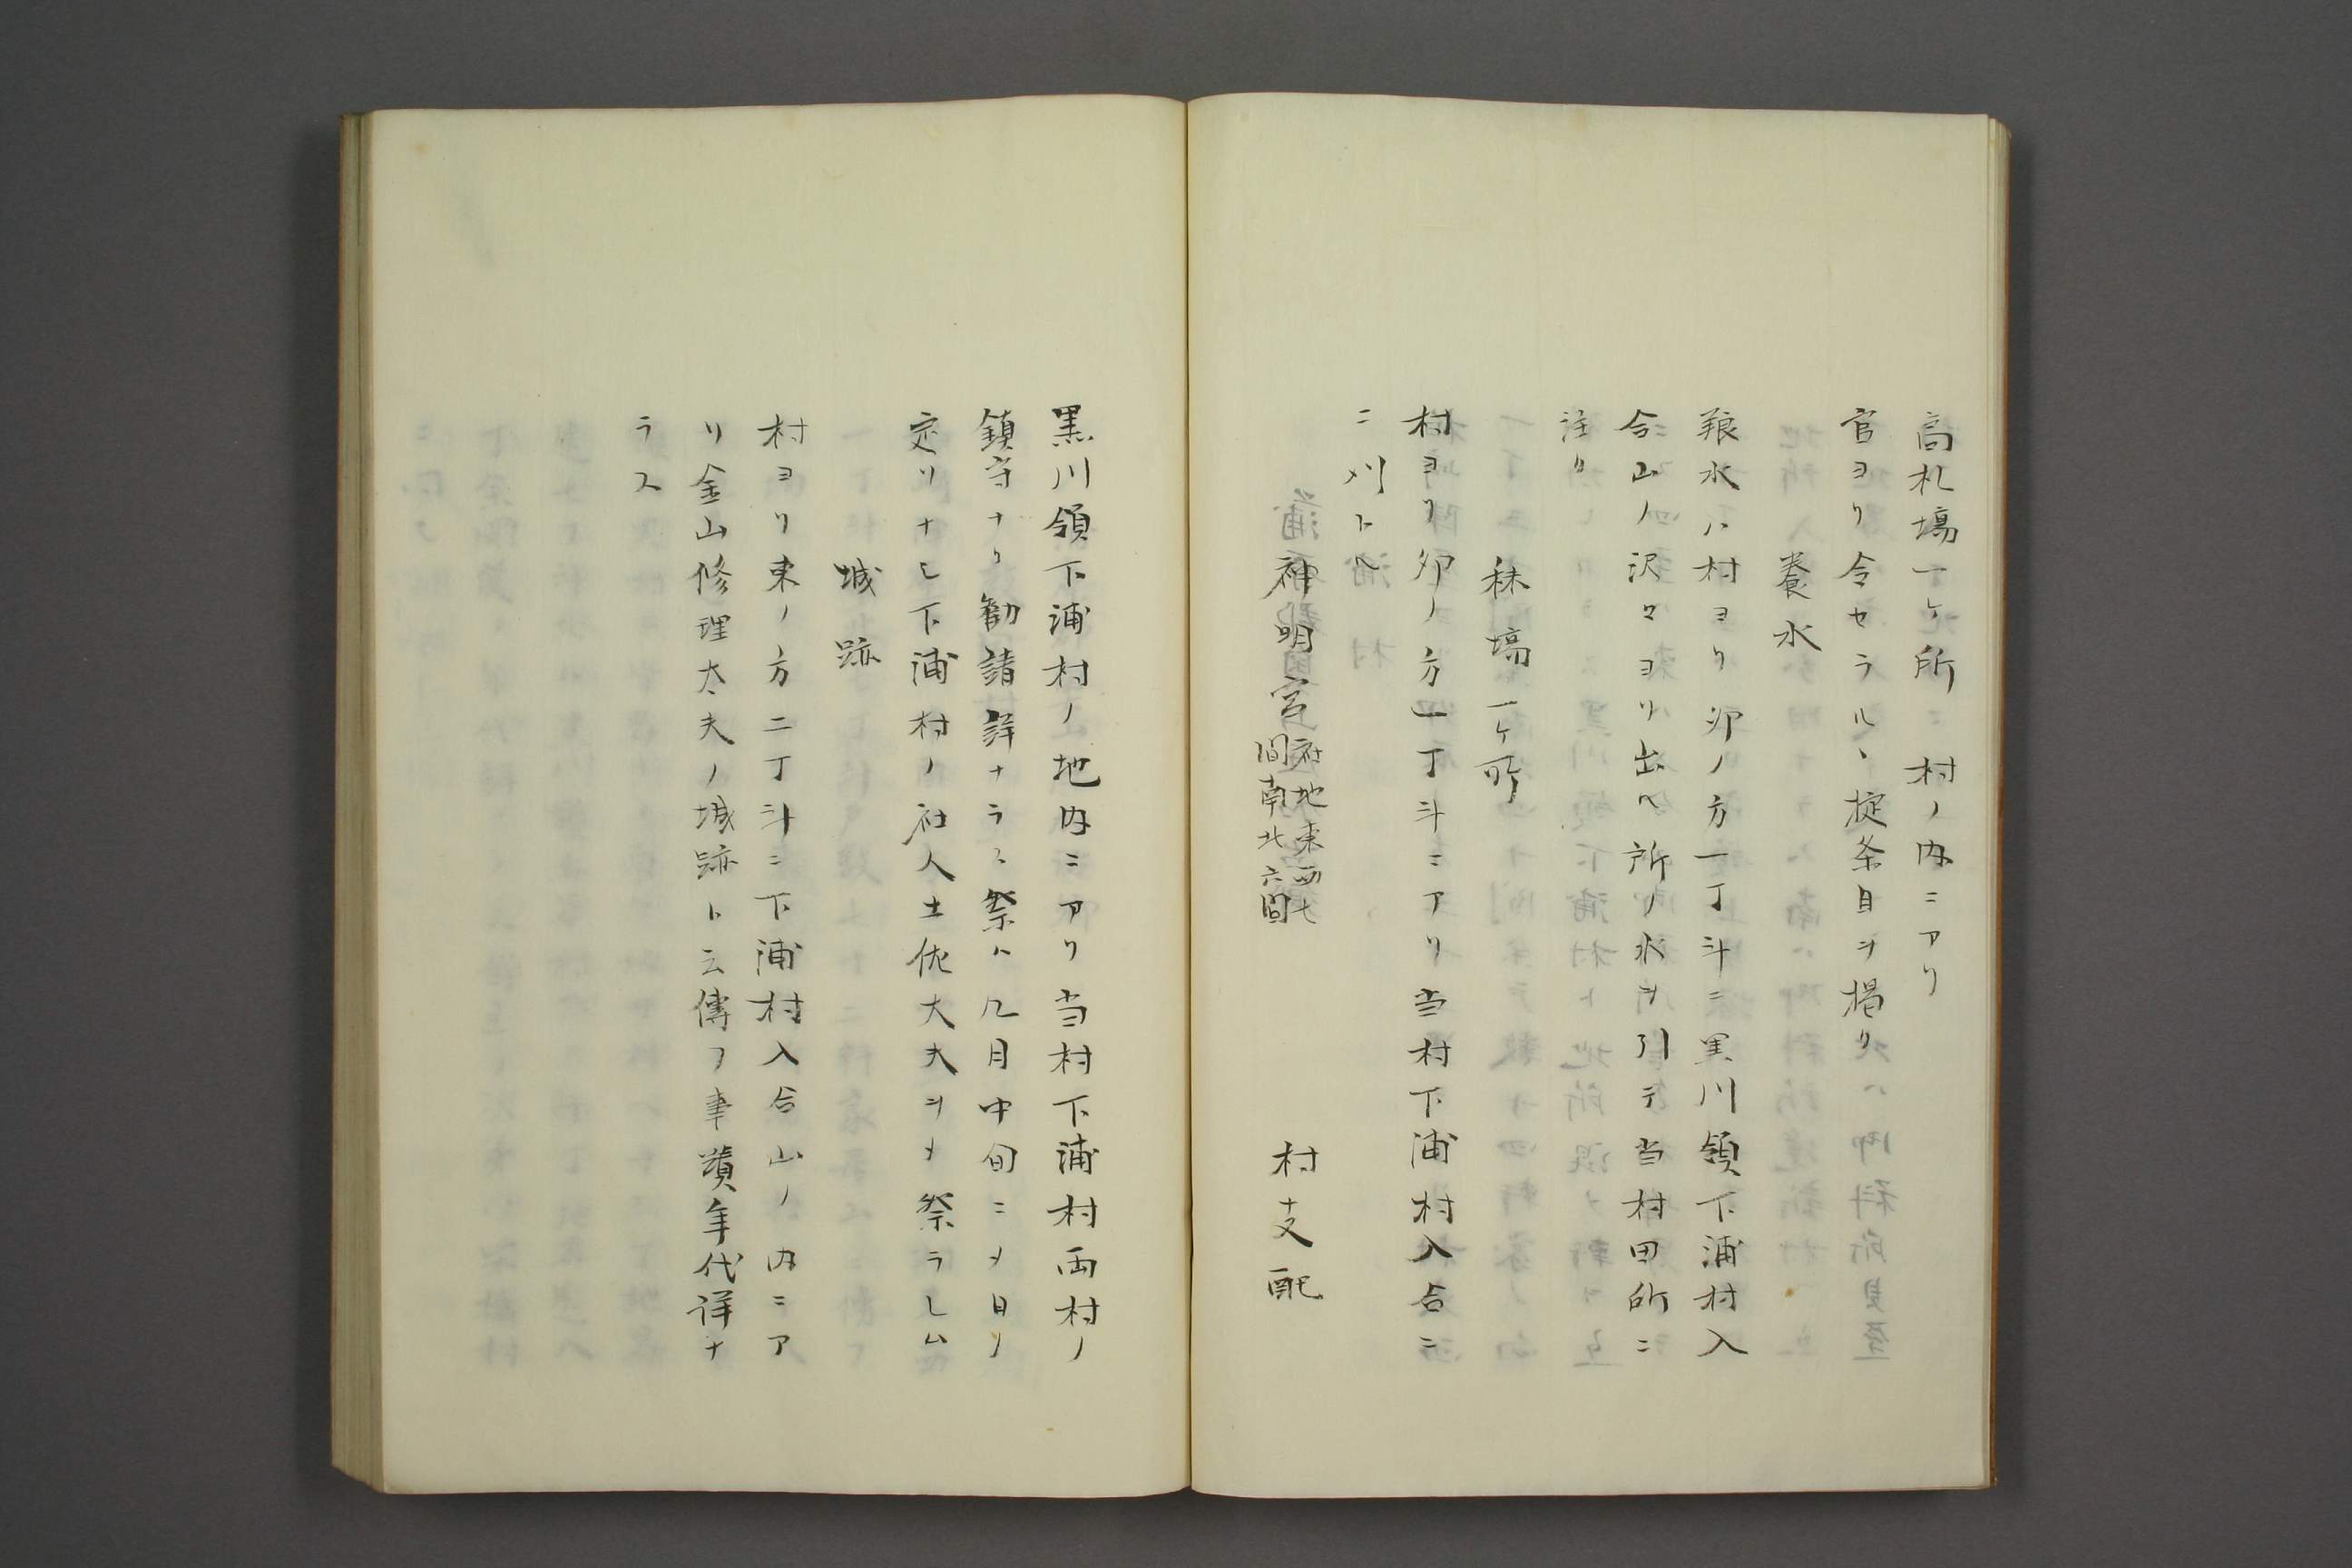 高札塲一ケ所 村ノ内ニアリ
官ヨリ令セラルヽ掟条目ヲ掲ク
養水
養水ハ村ヨリ卯ノ方一丁斗ニ黒川領下浦村入
合山ノ沢々ヨリ出ヘ所ノ水ヲ引テ当村田所ニ
注ク
秣塲一ケ所
村ヨリ卯ノ方一丁斗ニアリ当村下浦村入合ニ
ニ刈トヘ
神明宮 社地東西七
間南北六間 村支配
黒川領下浦村ノ地内ニアリ当村下浦村両村ノ
鎮守ナリ勧請詳ナラス祭ハ九月中旬ニメ日ノ
定リナモ下浦村ノ社人土佐大夫ヲメ祭ラシム
城跡
村ヨリ東ノ方二丁斗ニ下浦村入合山ノ内ニア
リ金山修理太夫ノ城跡ト云傳フ事蹟年代詳ナ
ラス